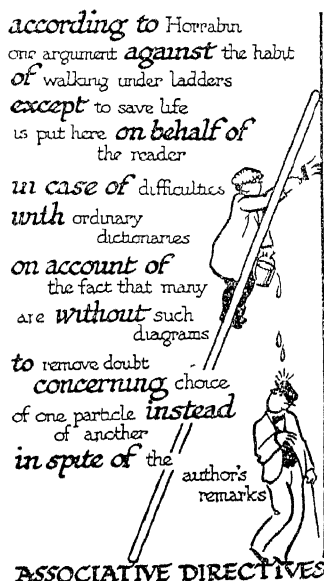 according to Horrabin
one argument against the habit
of walking under ladders
except to save life
is put here on behalf of
the reader
in case of difficulties
with ordinary
dictionaries
on account of
the fact that many
are without such
diagrams
to remove doubt
concerning choice
of one particle instead
of another
in spite of the
author's
remarks
ASSOCIATIVE DIRECTIVES